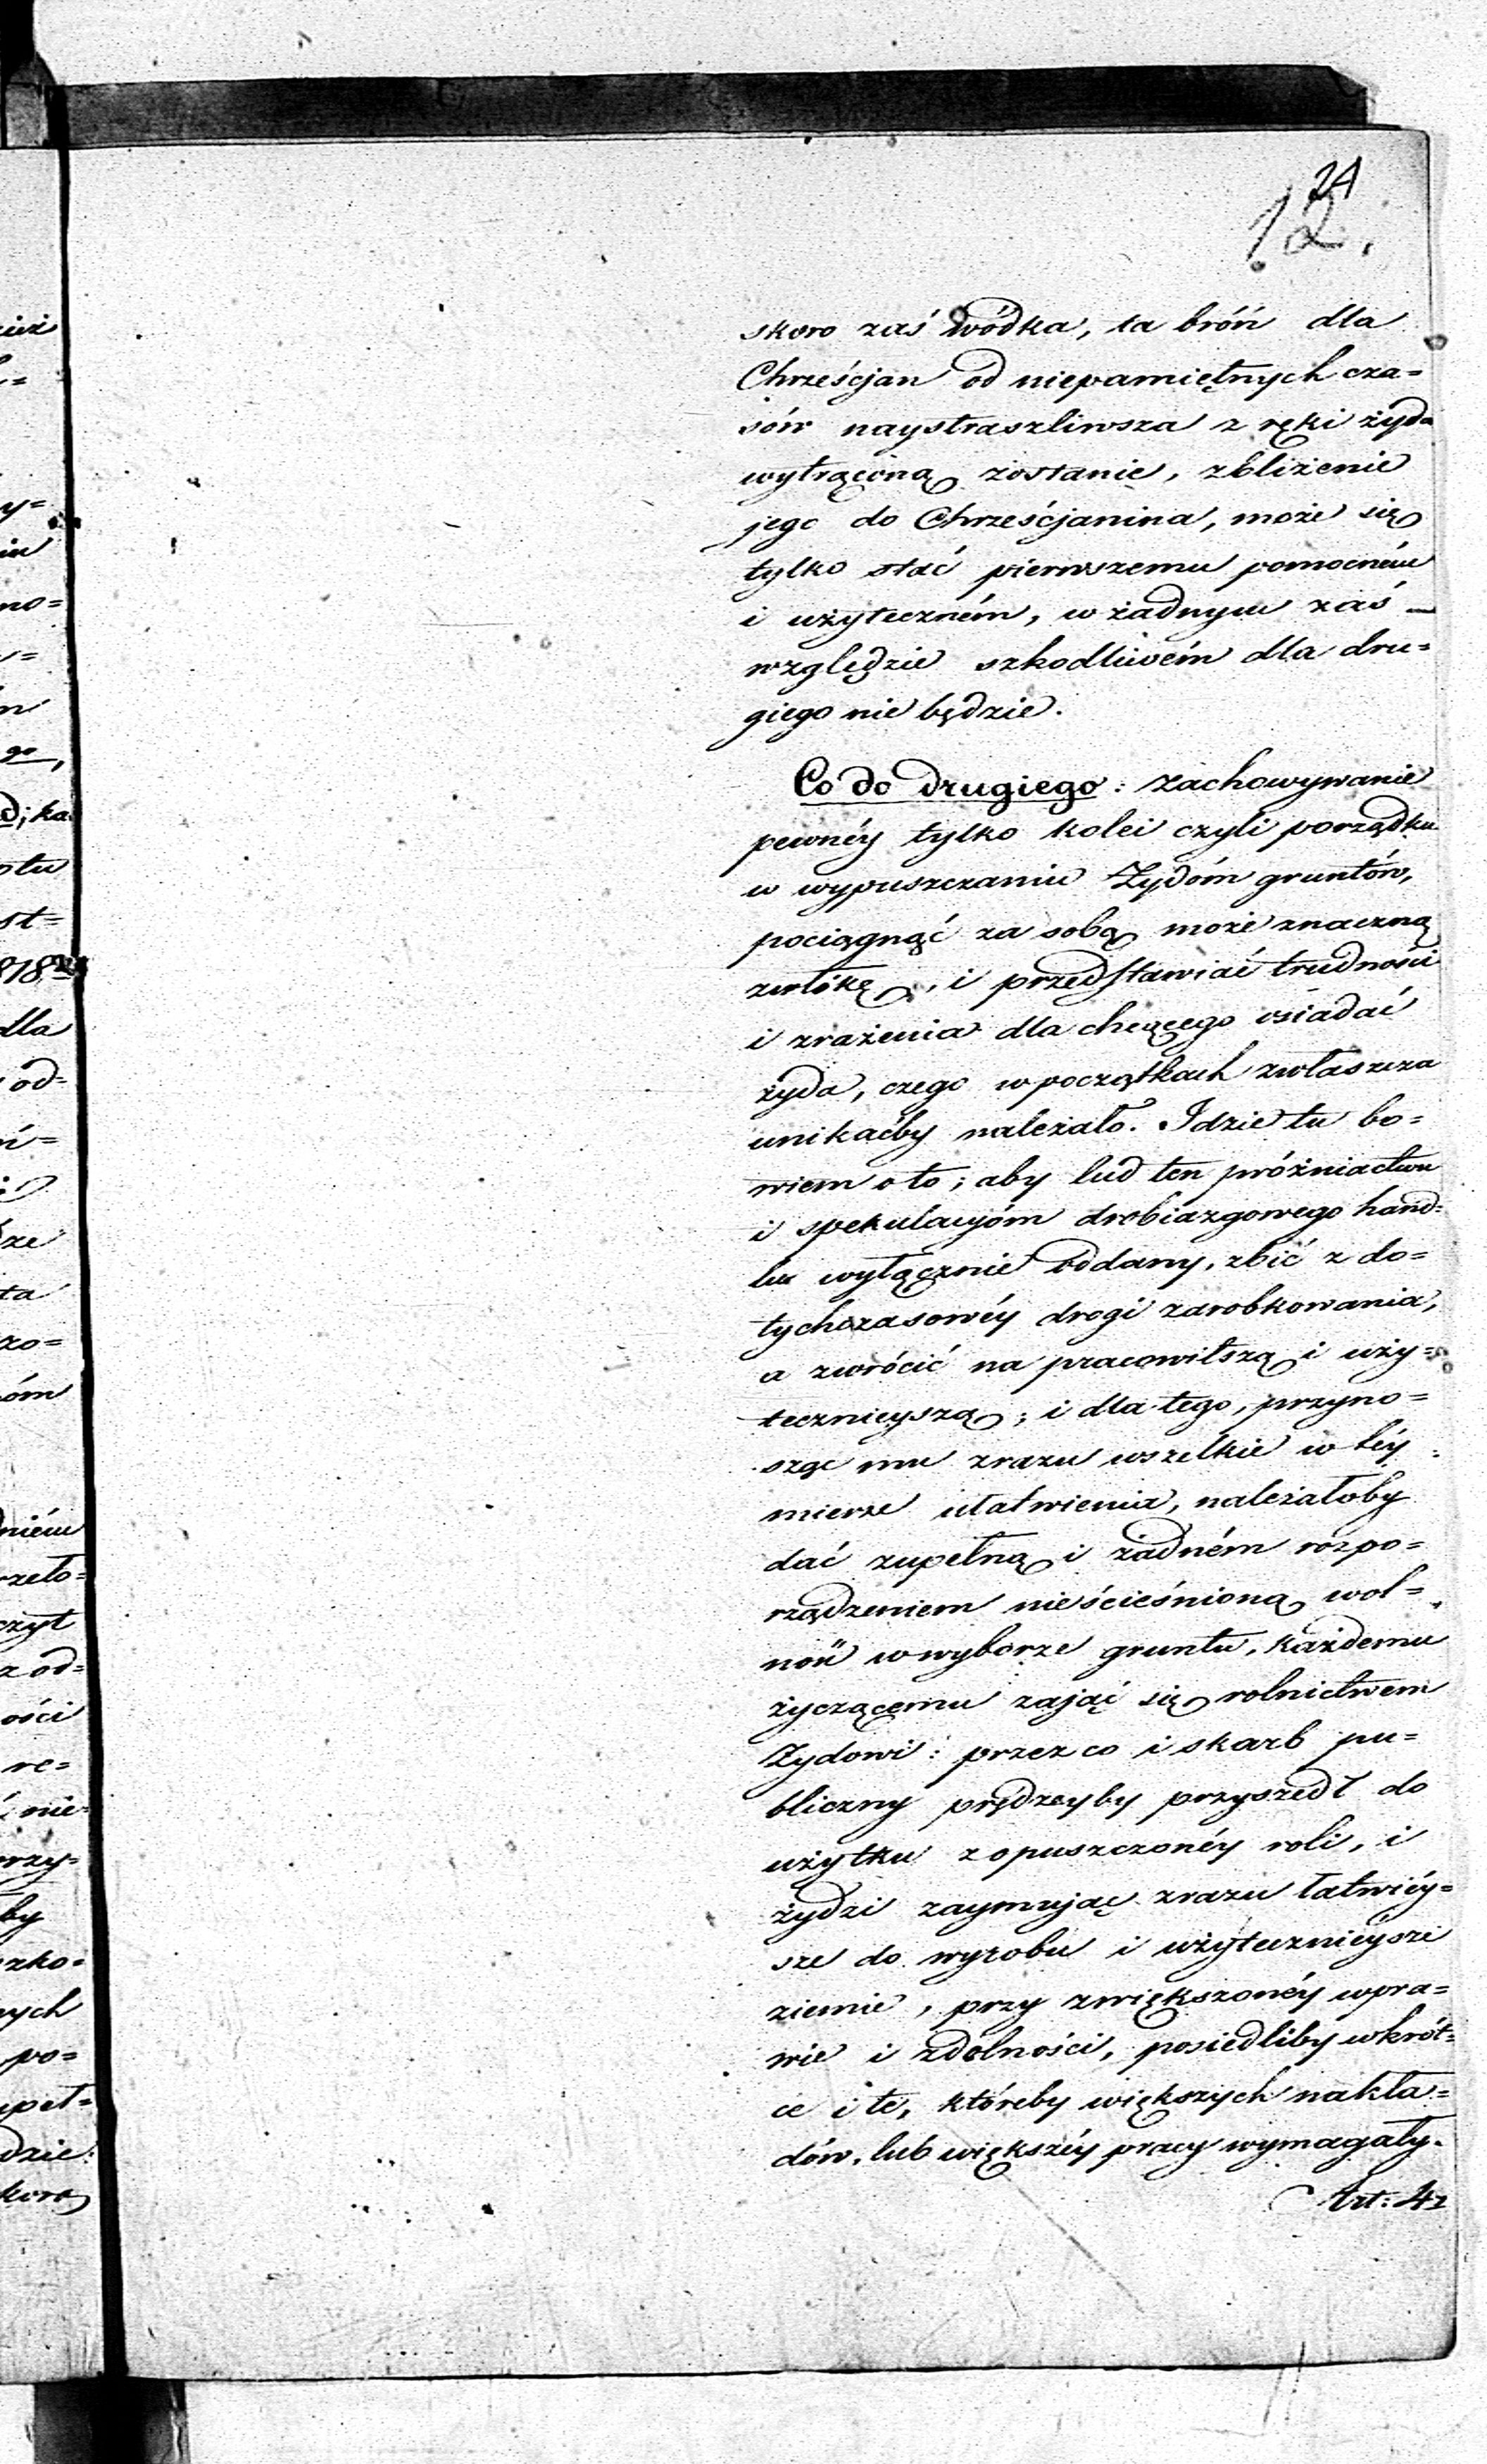 24
12.
skoro zaś wódka, ta bróń dla
Chrześcjan od niepamiętnych cza=
sów naystraszliwsza z ręki żyda
wytrąconą zostanie, zbliżenie
jego do Chrześcjanina, może się
tylko stać pierwszemu pomocném
i użyteczném, w żadnym zaś —
względzie szkodliwém dla dru=
giego nie będzie.
Co do drugiego: zachowywanie
pewnéy tylko kolei czyli porządku
w wypuszczaniu Żydóm gruntów,
pociągnąć za sobą może znaczną
zwłókę, i przedstawiać trudności
i zrażenia dla chcącego osiadać
żyda, czego w początkach zwłaszcza
unikaćby należało. Idzie tu bo=
wiem o to; aby lud ten próżniactwu
i spekulacyóm drobiazgowego hand=
lu wyłącznie oddany, zbić z do=
tychczasowéy drogi zarobkowania,
a zwrócić na pracowitszą i uży=
tecznieyszą; i dla tego, przyno=
sząc mu zrazu wszelkie w téy
mierze ułatwienia, należałoby
dać zupełną i żadném rozpo=
rządzeniem nieścieśnioną wol=
ność w wyborze gruntu, każdemu
życzącemu zająć się rolnictwem
Żydowi: przez co i skarb pu=
bliczny prędzeyby przyszedł do
użytku z opuszczonéy roli, i
żydzi zaymując zrazu łatwiéy=
sze do wyrobu i użytecznieysze
ziemie, przy zwiększonéy wpra=
wie i zdolności, posiedliby wkrót=
ce i te, któreby większych nakła=
dów, lub większéy pracy wymagały.
Art: 4z